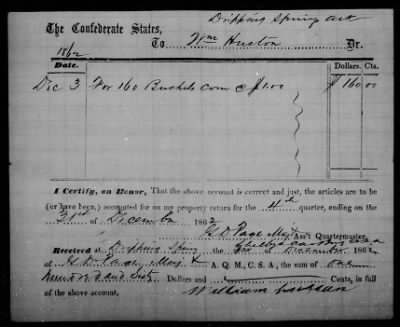 Dripping Spring Ark
The Confederate States,
1862 To Wm Huston Dr.
Date. Dollars. Cts.
Dec 3 For 160 Bushels corn @ $1.00 $160.00
I Certify, on Honor, That the above account is correct and just, the articles are to be
(or have been,) accounted for on my property return for the 4th quarter, ending on the
31st of December 1862
G D Page Maj &
Ass't Quartermaster,
Received at Dripping Spring the 3rd of December 1862
of G D Page Maj & A. Q. M., C. S. A., the sum of one
hundred and Sixty Dollars and Cents, in full
of the above account, William